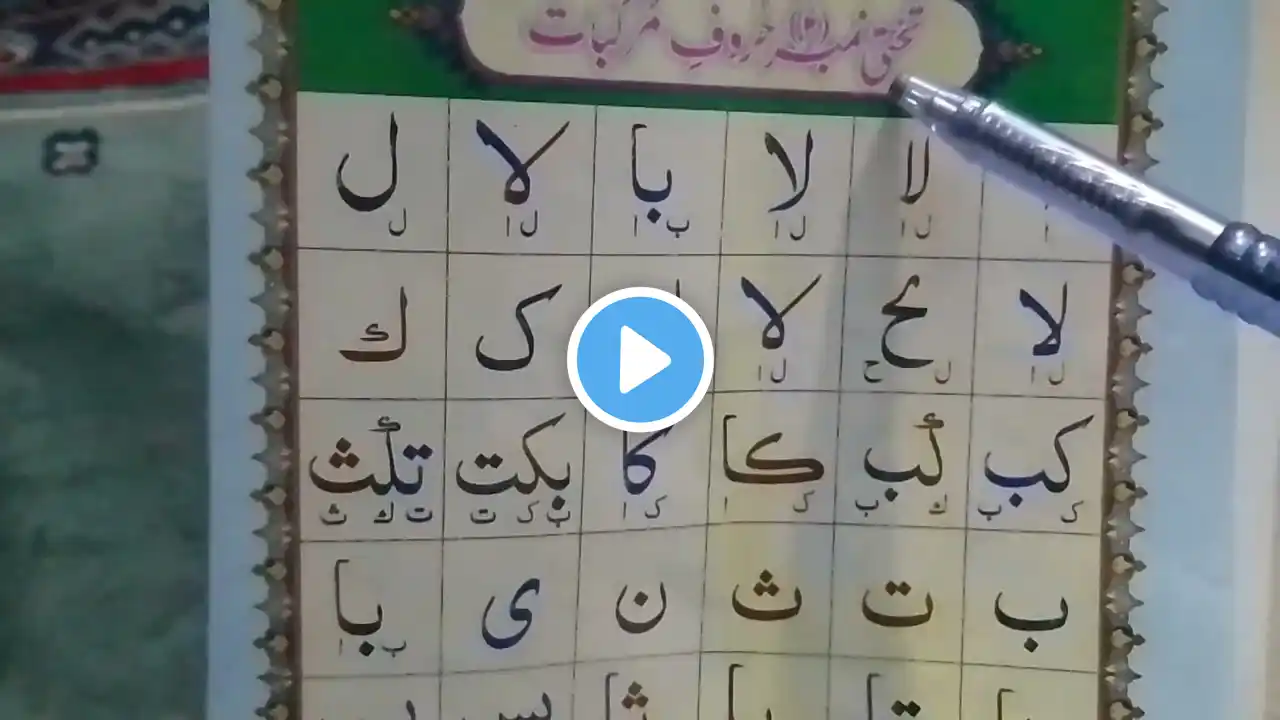 تختی نمبر (۲) حروفِ مرکبات
لا لا با لا ل
ا ل ا ل ا ب ا ل ا ل
لا لح لا ک ك
ل ا ل ح ل ا
کب كب کا کا بکت تكث
ک ب ك ب ک ا ک ا ب ک ت ت ك ث
ب ت ث ن ی با
ب ا